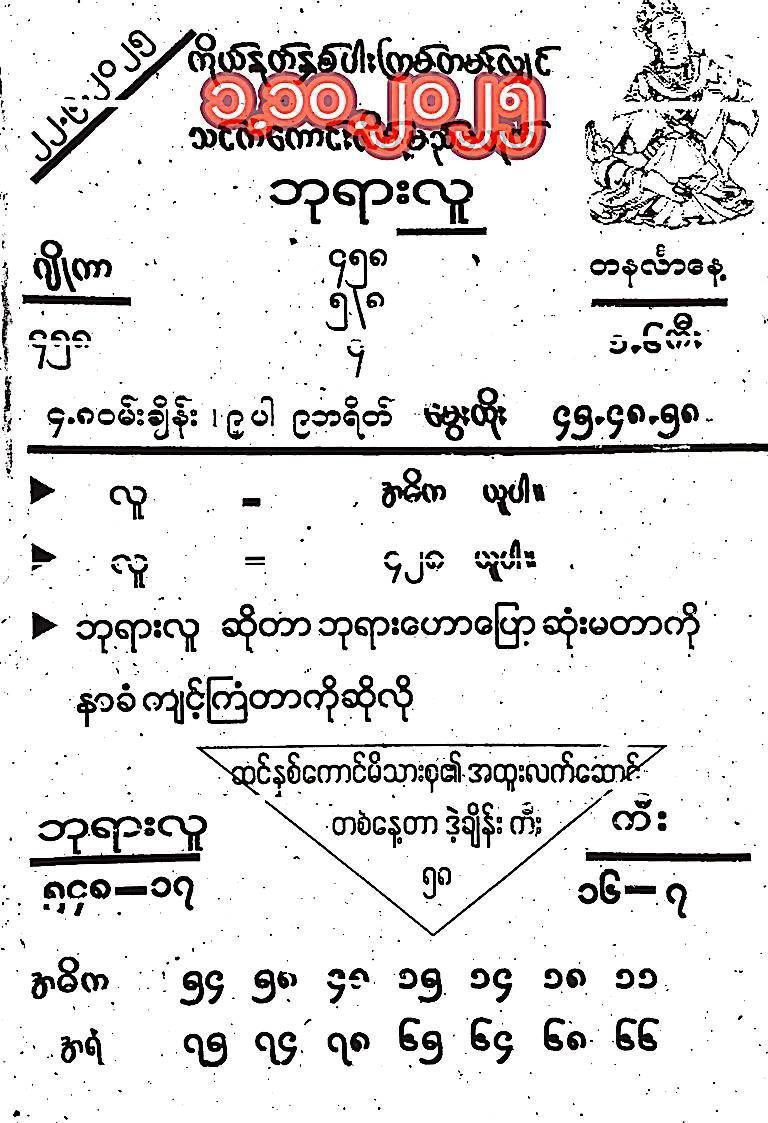 ၂၂.၉.၂၀၂၅
ကိုယ်နတ်နှစ်ပါးကြမ်တမ်းလျင်
၁.၁၀.၂၀၂၅
ဘုရားလူ
ဂျိုကာ
၄၅၈
တနင်္လာနေ့
၅\၈
၄၅၈
၄
၁.၆ကီး
၄.၈ဝမ်းချိန်း ၊၉ ပါ ၉ဘရိတ် မွေးထိုး ၄၅.၄၈.၅၈
လူ = အဓိက ယူပါ။
လူ = ၄၂၈ ယူပါ။
ဘုရားလူ ဆိုတာ ဘုရားဟောပြော့ ဆုံးမတာကို
နာခံ ကျင့်ကြံတာကိုဆိုလို
ဆင်နှစ်ကောင်မိသားစု၏ အထူးလက်ဆောင်
တစံနေ့တာ ဒဲ့ချိန်း ကီး
၅၈
ဘုရားလူ
၅၄၈−၁၇
ကီး
၁၆−၇
အဓိက ၅၄ ၅၈ ၄၈ ၁၅ ၁၄ ၁၈ ၁၁
အရံ ၇၅ ၇၄ ၇၈ ၆၅ ၆၄ ၆၈ ၆၆